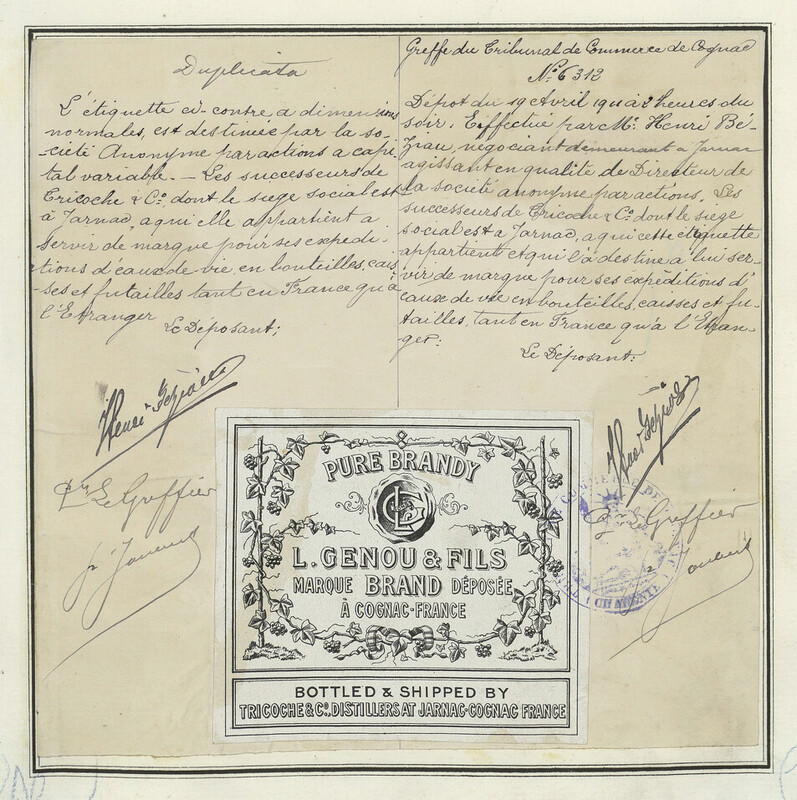 Duplicata
L'étiquette ci-contre a dimensions
normales, est destinée par la so-
-ciété Anonyme par actions a capi-
tal variable. — Les successeurs de
Tricoche & Cº, dont le siege social est
à Jarnac, a qui elle appartient a
servir de marque pour ses expedi-
tions d'eaux-de-vie, en bouteilles, cais-
ses et futailles tant en France qu'à
l'Etranger
Le Déposant;
Henri
Pr Le Greffier
Greffe du Tribunal de Commerce de Cognac
Nº 6313
Dépot du 19 Avril 1911 à 2 heures du
soir. Effectué par Mr. Henri Bé-
ziau, négociant demeurant à Jarnac
agissant en qualité de Directeur de
la société anonyme par actions. Les
successeurs de Tricoche & Cº dont le siège
social est a Jarnac, a qui cette etiquette
appartient et qui l'à destine a lui ser-
vir de marque pour ses expéditions d'
eaux de vie en bouteilles, caisses et fu-
tailles, tant en France qu'à l'Etran-
ger:
Le Déposant:
Le Greffier
CHARENTE
PURE BRANDY
L. GENOU & FILS
MARQUE BRAND DÉPOSÉE
À COGNAC-FRANCE
BOTTLED & SHIPPED BY
TRICOCHE & Cº. DISTILLERS AT JARNAC-COGNAC FRANCE